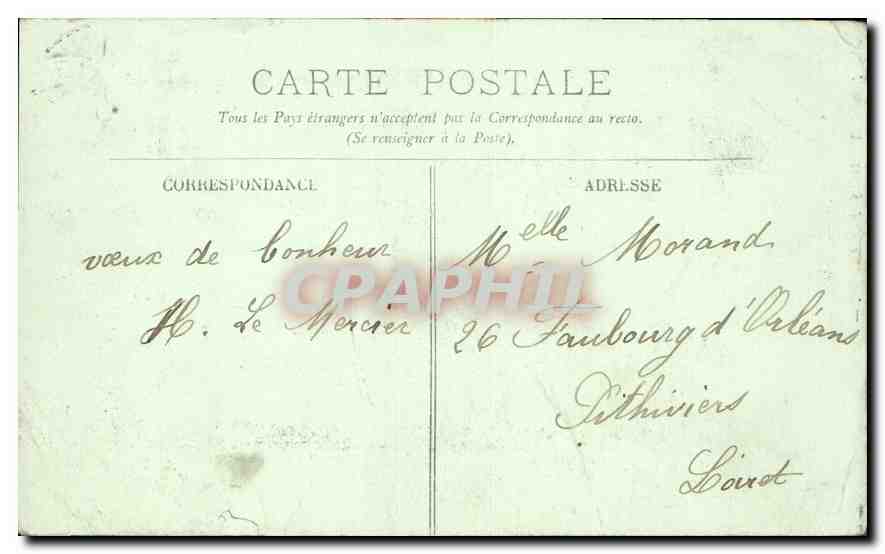 CARTE POSTALE
Tous les Pays étrangers n'acceptent pas la Correspondance au recto.
(Se renseigner à la Poste).
CORRESPONDANCE
ADRESSE
vœux de bonheur
H. Le Mercier
Melle Morand
26 Faubourg d'Orléans
Pithiviers
Loiret
CPAPHIL